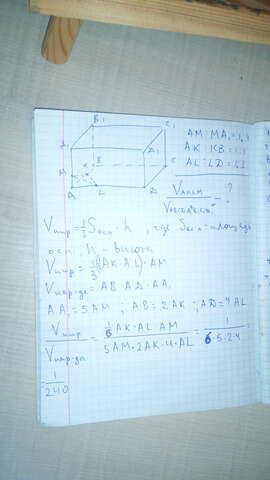 B₁
C₁
A₁
D₁
M
K
B
C
A
L
D
AM:MA₁=1:4
AK:KB=1:1
AL:LD=1:3
= ?
Vпир=1/3 Sосн·h, где Sосн - площадь
осн, h - высота
Vпир=1/6(AK·AL)·AM
Vпир-да=AB·AD·AA₁
AA₁=5AM; AB=2AK; AD=4AL
Vпир/Vпир-да=6AK·AL·AM/5AM·2AK·4·AL=1/6·5·2·4=
=1/240